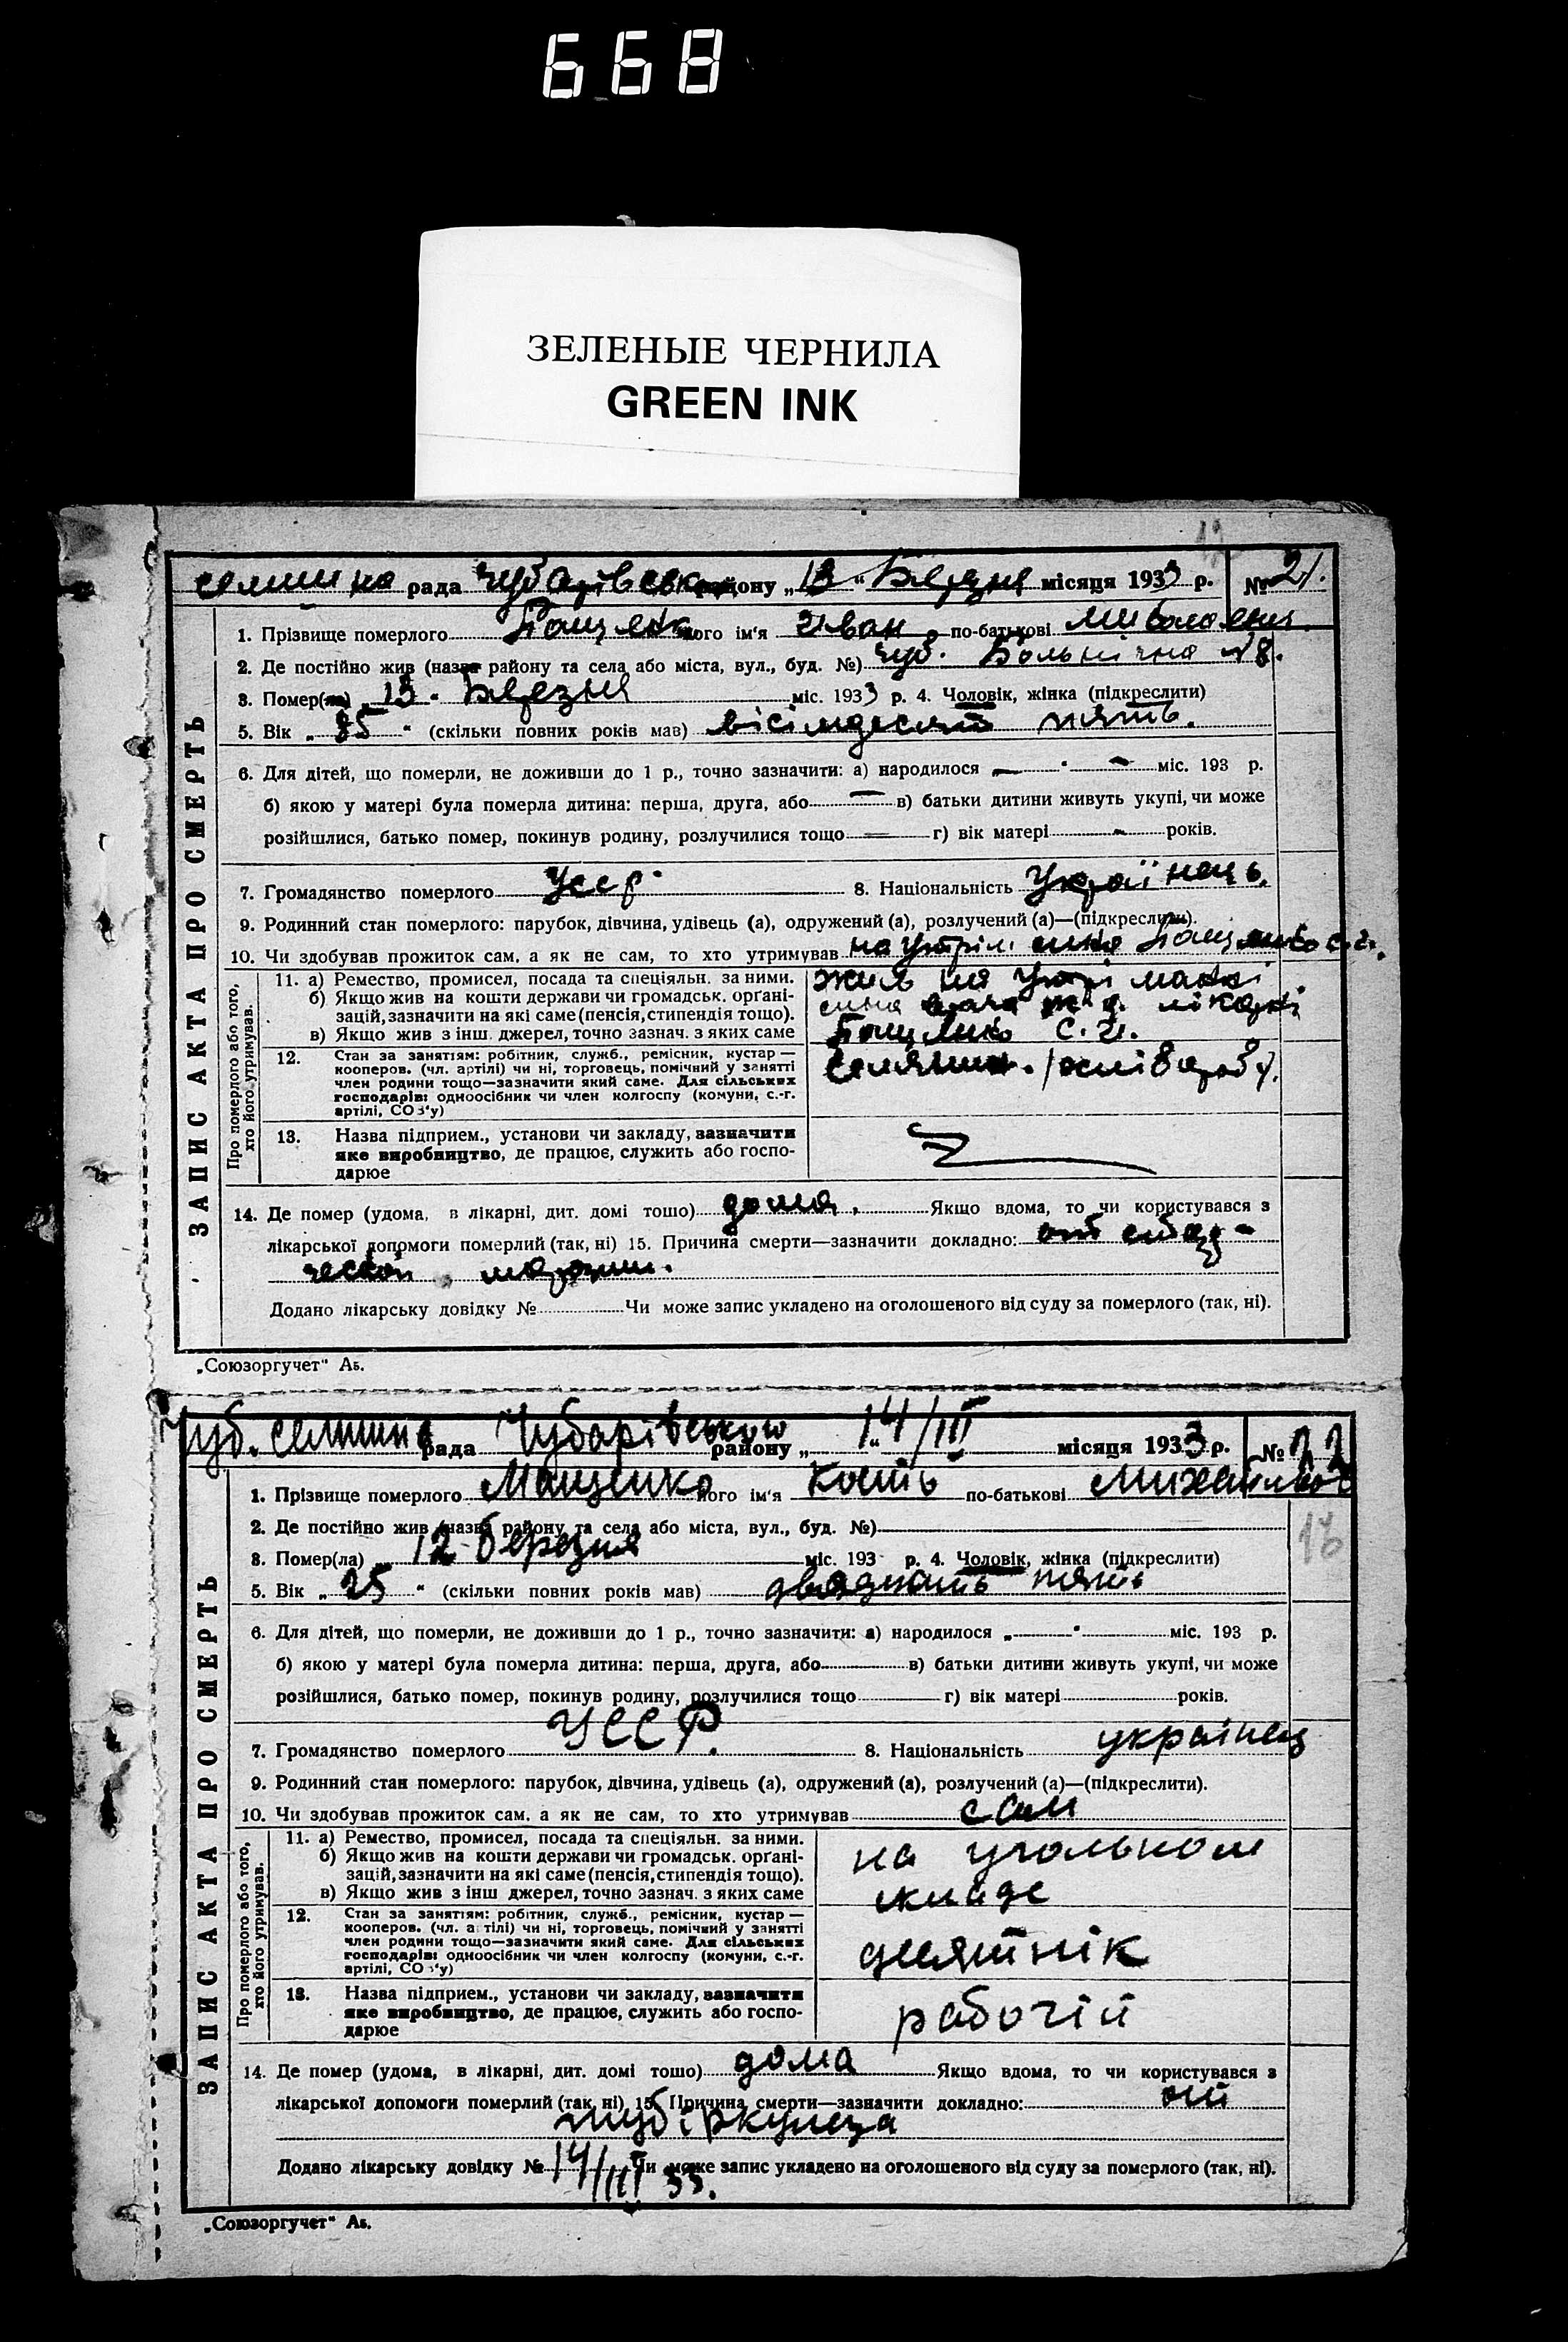 668
ЗЕЛЕНЫЕ ЧЕРНИЛА
GREEN INK
рада Чубарівськ району „13“ Березня місяця 1933 р. № 21.
1. Прізвище померлого його ім'я Іван по-батькові
2. Де постійно жив (назва району та села або міста, вул., буд. №) Чуб. Больнична №8.
3. Помер(ла) 13 Березня міс. 1933 р. 4. Чоловік, жінка (підкреслити)
5. Вік „85“ (скільки повних років мав) вісімдесят пять.
6. Для дітей, що померли, не доживши до 1 р., точно зазначити: а) народилося — " — міс. 193 р.
б) якою у матері була померла дитина: перша, друга, або — в) батьки дитини живуть укупі, чи може
розійшлися, батько помер, покинув родину, розлучилися тощо — г) вік матері - років.
7. Громадянство померлого УССР 8. Національність Українець.
9. Родинний стан померлого: парубок, дівчина, удівець (а), одружений (а), розлучений (а)—(підкреслити).
10. Чи здобував прожиток сам, а як не сам, то хто утримував на утрим. сина
ЗАПИС АКТА ПРО СМЕРТЬ
Про померлого або того, хто його утримував.
11. а) Ремество, промисел, посада та спеціяльн. за ними.
б) Якщо жив на кошти держави чи громадськ. орґані-
зацій, зазначити на які саме (пенсія, стипендія тощо).
в) Якщо жив з інш. джерел, точно зазнач. з яких саме
жив на
сина
С. И.
12. Стан за занятіям: робітник, служб., ремісник, кустар —
кооперов. (чл. артілі) чи ні, торговець, помічний у занятті
член родини тощо—зазначити який саме. Для сільських
господарів: одноосібник чи член колгоспу (комуни, с.-г.
артілі, СОЗ'у)
13. Назва підприєм., установи чи закладу, зазначити
яке виробництво, де працює, служить або госпо-
дарює
14. Де помер (удома, в лікарні, дит. домі тошо) дома. Якщо вдома, то чи користувався з
лікарської допомоги померлий (так, ні) 15. Причина смерти—зазначити докладно: от старч-
ческой
Додано лікарську довідку № Чи може запис укладено на оголошеного від суду за померлого (так, ні).
„Союзоргучет“ Аб.
Чуб. селищна рада Чубарівського району „14/III“ місяця 1933 р. № 22
1. Прізвище померлого Мащенко його ім'я Кость по-батькові Михайлович
2. Де постійно жив (назва району та села або міста, вул., буд. №)
3. Помер(ла) 12 березня міс. 193 р. 4. Чоловік, жінка (підкреслити)
5. Вік „25“ (скільки повних років мав) двадцять пять
6. Для дітей, що померли, не доживши до 1 р., точно зазначити: а) народилося „ " міс. 193 р.
б) якою у матері була померла дитина: перша, друга, або в) батьки дитини живуть укупі, чи може
розійшлися, батько помер, покинув родину, розлучилися тощо г) вік матері років.
7. Громадянство померлого УССР. 8. Національність українец
9. Родинний стан померлого: парубок, дівчина, удівець (а), одружений (а), розлучений (а)—(підкреслити).
10. Чи здобував прожиток сам, а як не сам, то хто утримував сам
ЗАПИС АКТА ПРО СМЕРТЬ
Про померлого або того, хто його утримував.
11. а) Ремество, промисел, посада та спеціяльн. за ними.
б) Якщо жив на кошти держави чи громадськ. орґані-
зацій, зазначити на які саме (пенсія, стипендія тощо).
в) Якщо жив з інш джерел, точно зазнач. з яких саме
на угольном
складе
12. Стан за занятіям: робітник, служб., ремісник, кустар —
кооперов. (чл. артілі) чи ні, торговець, помічний у занятті
член родини тощо—зазначити який саме. Для сільських
господарів: одноосібник чи член колгоспу (комуни, с.-г.
артілі, СОЗ'у)
десятнік
13. Назва підприєм., установи чи закладу, зазначити
яке виробництво, де працює, служить або госпо-
дарює
рабочій
14. Де помер (удома, в лікарні, дит. домі тошо) дома Якщо вдома, то чи користувався з
лікарської допомоги померлий (так, ні) 15. Причина смерти—зазначити докладно: от
туберкулеза
Додано лікарську довідку № 14/III 33. Чи може запис укладено на оголошеного від суду за померлого (так, ні).
„Союзоргучет“ Аб.